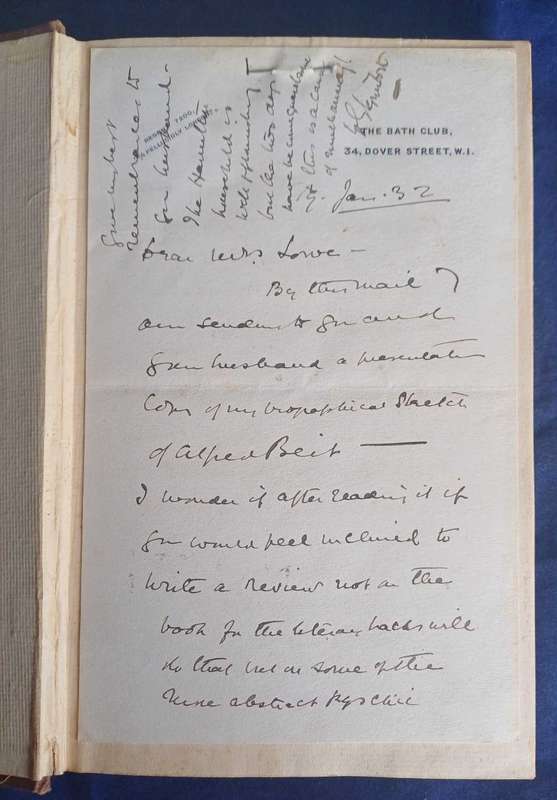 THE BATH CLUB,
34, DOVER STREET, W.1.
Jan. 32
Dear Mrs. Lowe —
By this mail I
am sending to you and
your husband a presentation
Copy of my biographical Sketch
of Alfred Beit —
I wonder if after reading it if
you would feel inclined to
write a review not on the
book for the literary hacks will
do that but on some of the
more abstract psychic
Give my best
remembrances to
your husband.
The Hamilton
household is
well & flourishing
but the two dogs
have been
this is a
of